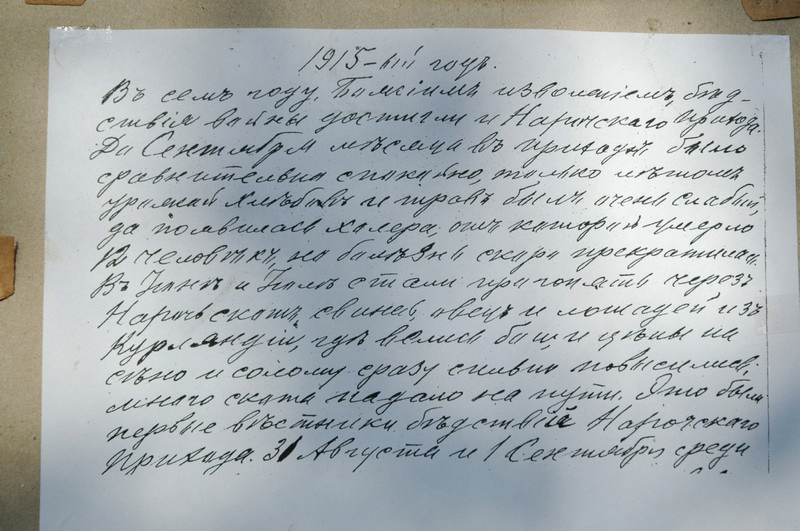 1915-ый годъ.
Въ семъ году, Божіимъ изволеніемъ, бѣд-
ствія войны достигли и Нарочскаго прихода.
До Сентября мѣсяца въ приходѣ было
сравнительно спокойно, только лѣтомъ
урожай хлѣбовъ и травъ былъ очень слабый,
да появилась холера, отъ которой умерло
12 человѣкъ, но болѣзнь скоро прекратилась.
Въ Іюнѣ и Іюлѣ стали пригонять черезъ
Нарочь скотъ, свиней, овецъ и лошадей изъ
Курляндіи, гдѣ велись бои и цѣны на
сѣно и солому сразу сильно повысились;
много скота падало на пути. Это были
первые вѣстники бѣдствій Нарочскаго
прихода. 31 Августа и 1 Сентября среди